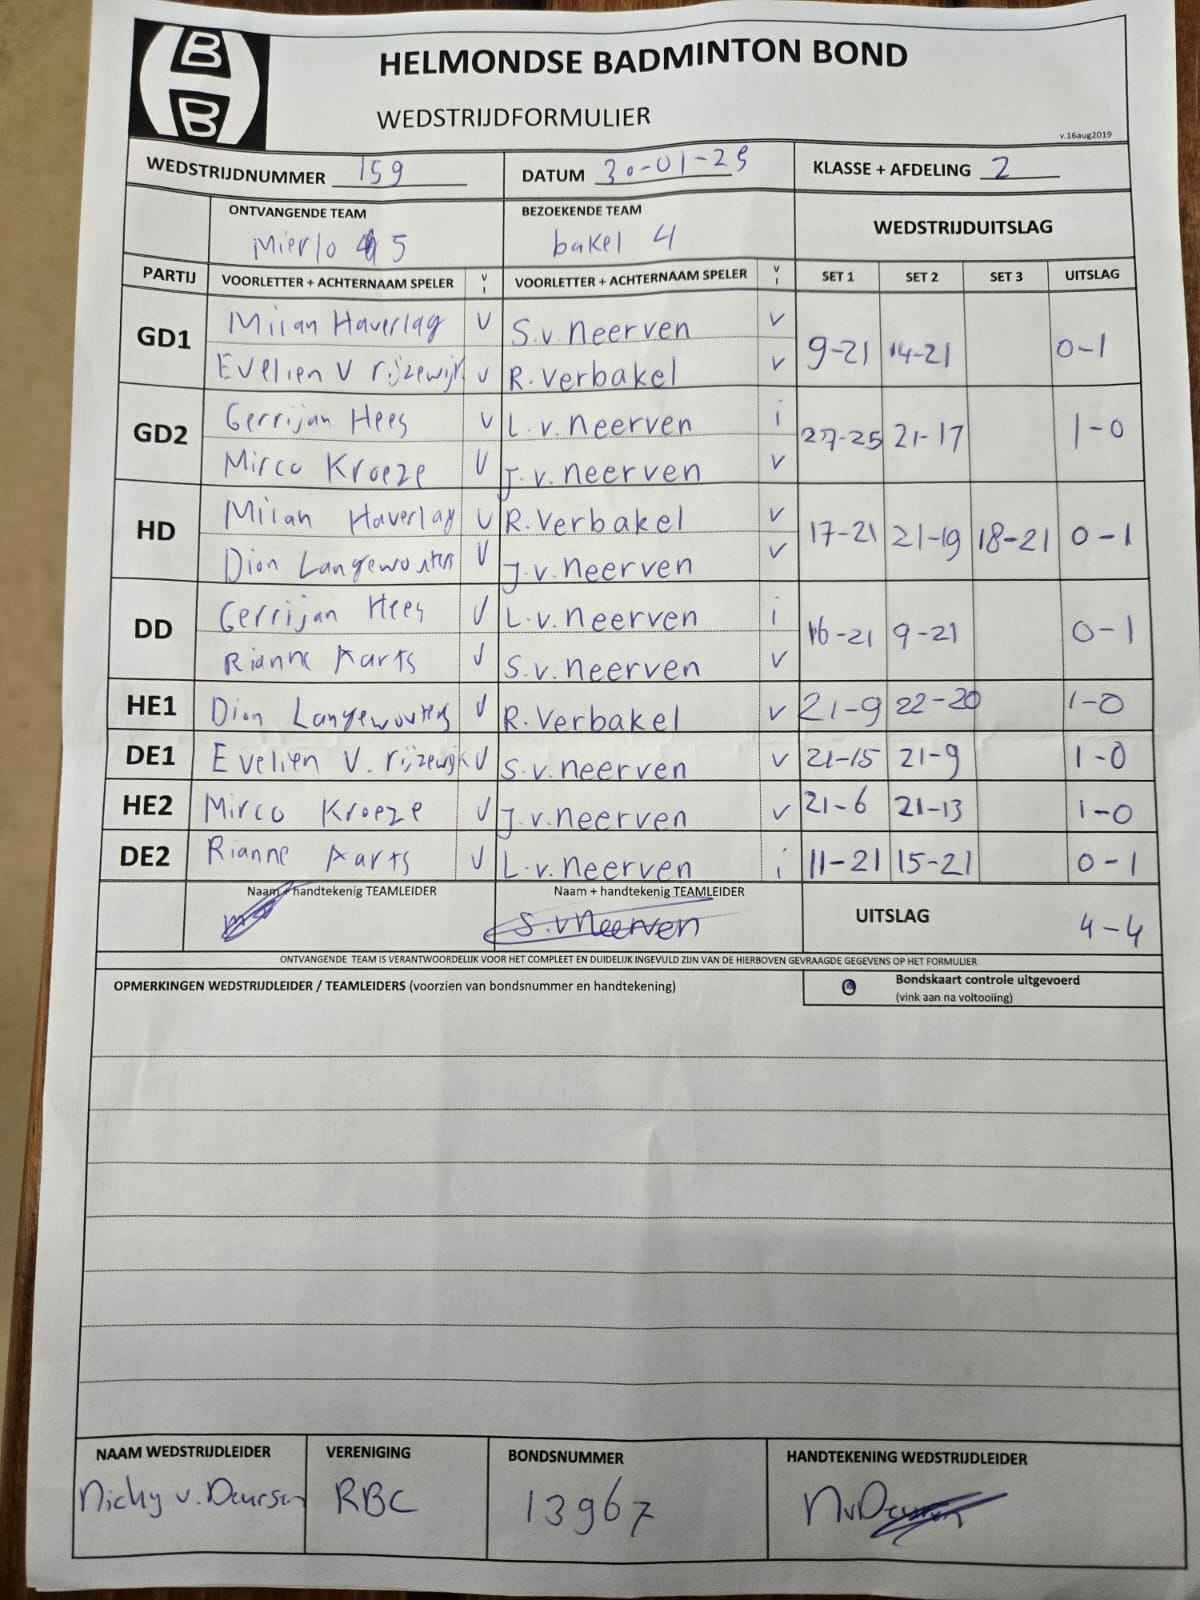 HELMONDSE BADMINTON BOND
WEDSTRIJDFORMULIER
v.16aug2019
WEDSTRIJDNUMMER 159 DATUM 30-01-25 KLASSE + AFDELING 2
ONTVANGENDE TEAM BEZOEKENDE TEAM WEDSTRIJDUITSLAG
Mierlo 5 bakel 4
PARTIJ VOORLETTER + ACHTERNAAM SPELER V I VOORLETTER + ACHTERNAAM SPELER V I SET 1 SET 2 SET 3 UITSLAG
GD1 Milan Haverlag v S.v. Neerven v 9-21 14-21 0-1
Evelien V rijzewijk v R. Verbakel v
GD2 Gerrijan Hees v L.v. Neerven i 27-25 21-17 1-0
Mirco Kroeze v J.v. Neerven v
HD Milan Haverlag v R. Verbakel v 17-21 21-19 18-21 0-1
Dion Langewouters v J.v. Neerven v
DD Gerrijan Hees v L.v. Neerven i 16-21 9-21 0-1
Rianne Aarts v S.v. Neerven v
HE1 Dion Langewouters v R. Verbakel v 21-9 22-20 1-0
DE1 Evelien V. rijzewijk v S.v. Neerven v 21-15 21-9 1-0
HE2 Mirco Kroeze v J.v. Neerven v 21-6 21-13 1-0
DE2 Rianne Aarts v L.v. Neerven i 11-21 15-21 0-1
Naam + handtekenig TEAMLEIDER Naam + handtekenig TEAMLEIDER UITSLAG 4-4
S. v Neerven
ONTVANGENDE TEAM IS VERANTWOORDELIJK VOOR HET COMPLEET EN DUIDELIJK INGEVULD ZIJN VAN DE HIERBOVEN GEVRAAGDE GEGEVENS OP HET FORMULIER
OPMERKINGEN WEDSTRIJDLEIDER / TEAMLEIDERS (voorzien van bondsnummer en handtekening) Bondskaart controle uitgevoerd
(vink aan na voltooiing)
NAAM WEDSTRIJDLEIDER VERENIGING BONDSNUMMER HANDTEKENING WEDSTRIJDLEIDER
Nicky v. Deursen RBC 13967 NvDeursen